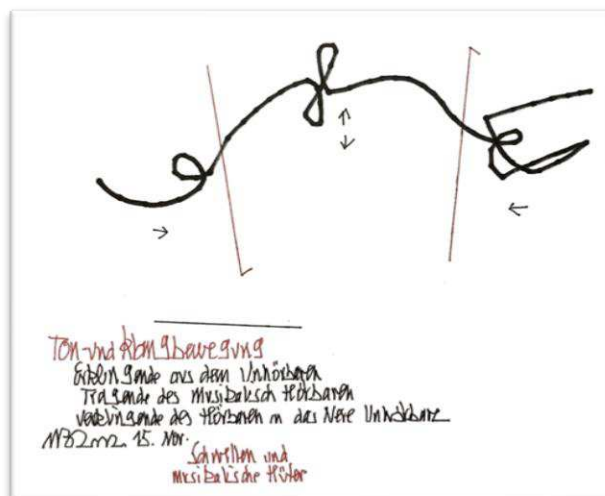 Ton- und Klangbewegung
Erklingende aus dem Unhörbaren
Tragende des musikalisch Hörbaren
verklingende des Hörbaren in das Neue Unhörbare
15. Nov.
Schwellen und
musikalische Hüter